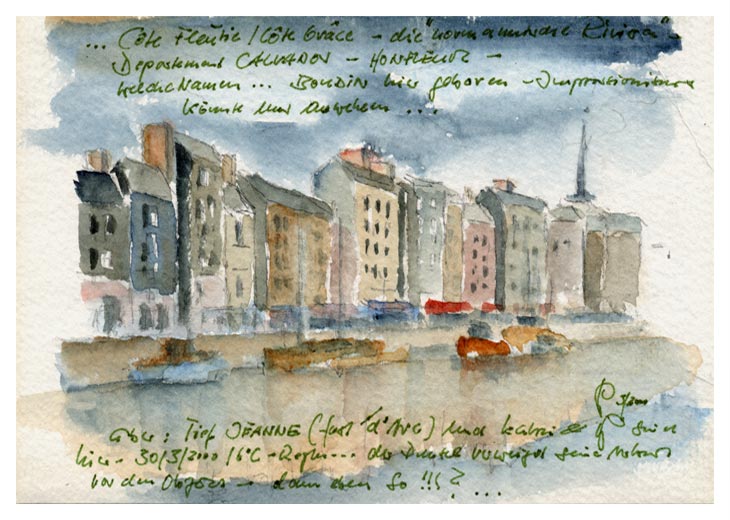 ... Côte Fleurie / Côte Grâce - die "normannische Riviera" -
Departement CALVADOS - HONFLEUR -
welche Namen ... BOUDIN hier geboren - Impressionismus
könnte man ...
aber: Tief JEANNE (fast d'Arc) und
hier - 30/3/2000 / 6°C - Regen ... der Dunkel verweigert seine
vor den ... - dann eben so !!! ? ...